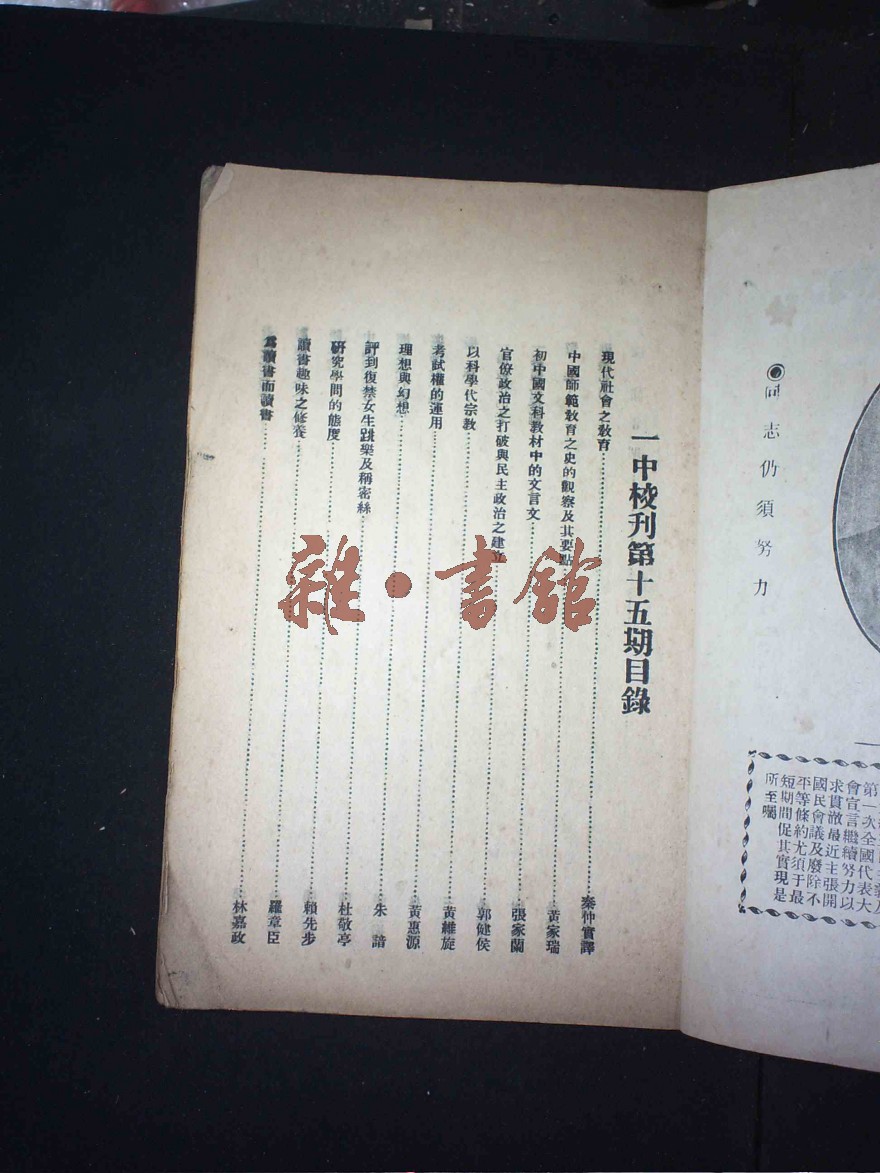 ◉同志仍須努力
第一次全國代表大
會宣言繼續努力以
求貫澈最近主張開
國民會議及廢除不
平等條約尤須于最
短期間促其實現是
所至囑
一中校刋第十五期目錄
現代社會之敎育……秦仲實譯
中國師範敎育之史的觀察及其要點……黃家瑞
初中國文科敎材中的文言文……張家蘭
官僚政治之打破與民主政治之建立……郭健侯
以科學代宗敎……黃維旋
考試權的運用……黃惠源
理想與幻想……朱諳
評到復禁女生跳樂及稱密絲……杜敬亭
研究學問的態度……賴先步
讀書趣味之修養……羅章臣
爲讀書而讀書……林嘉政
雜·書館